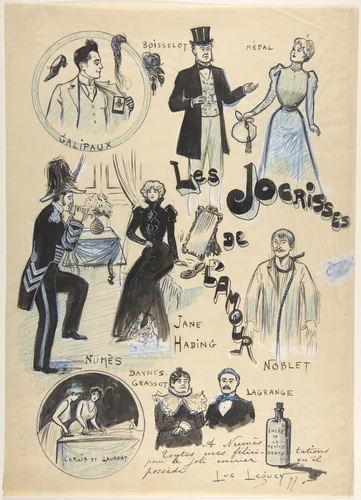 BOISSELOT
MÉDAL
GALIPAUX
LES
JOCRISSES
DE
L'AMOUR
JANE
HADING
NUMÈS
NOBLET
DAYNES
GRASSOT
LAGRANGE
CARLIX ET LAURENT
ENCRE
DE LA
PETITE
VERTU
A Numès
toutes mes félicitations
pour le joli encrier qu'il
possède.
Luc Leguey 97